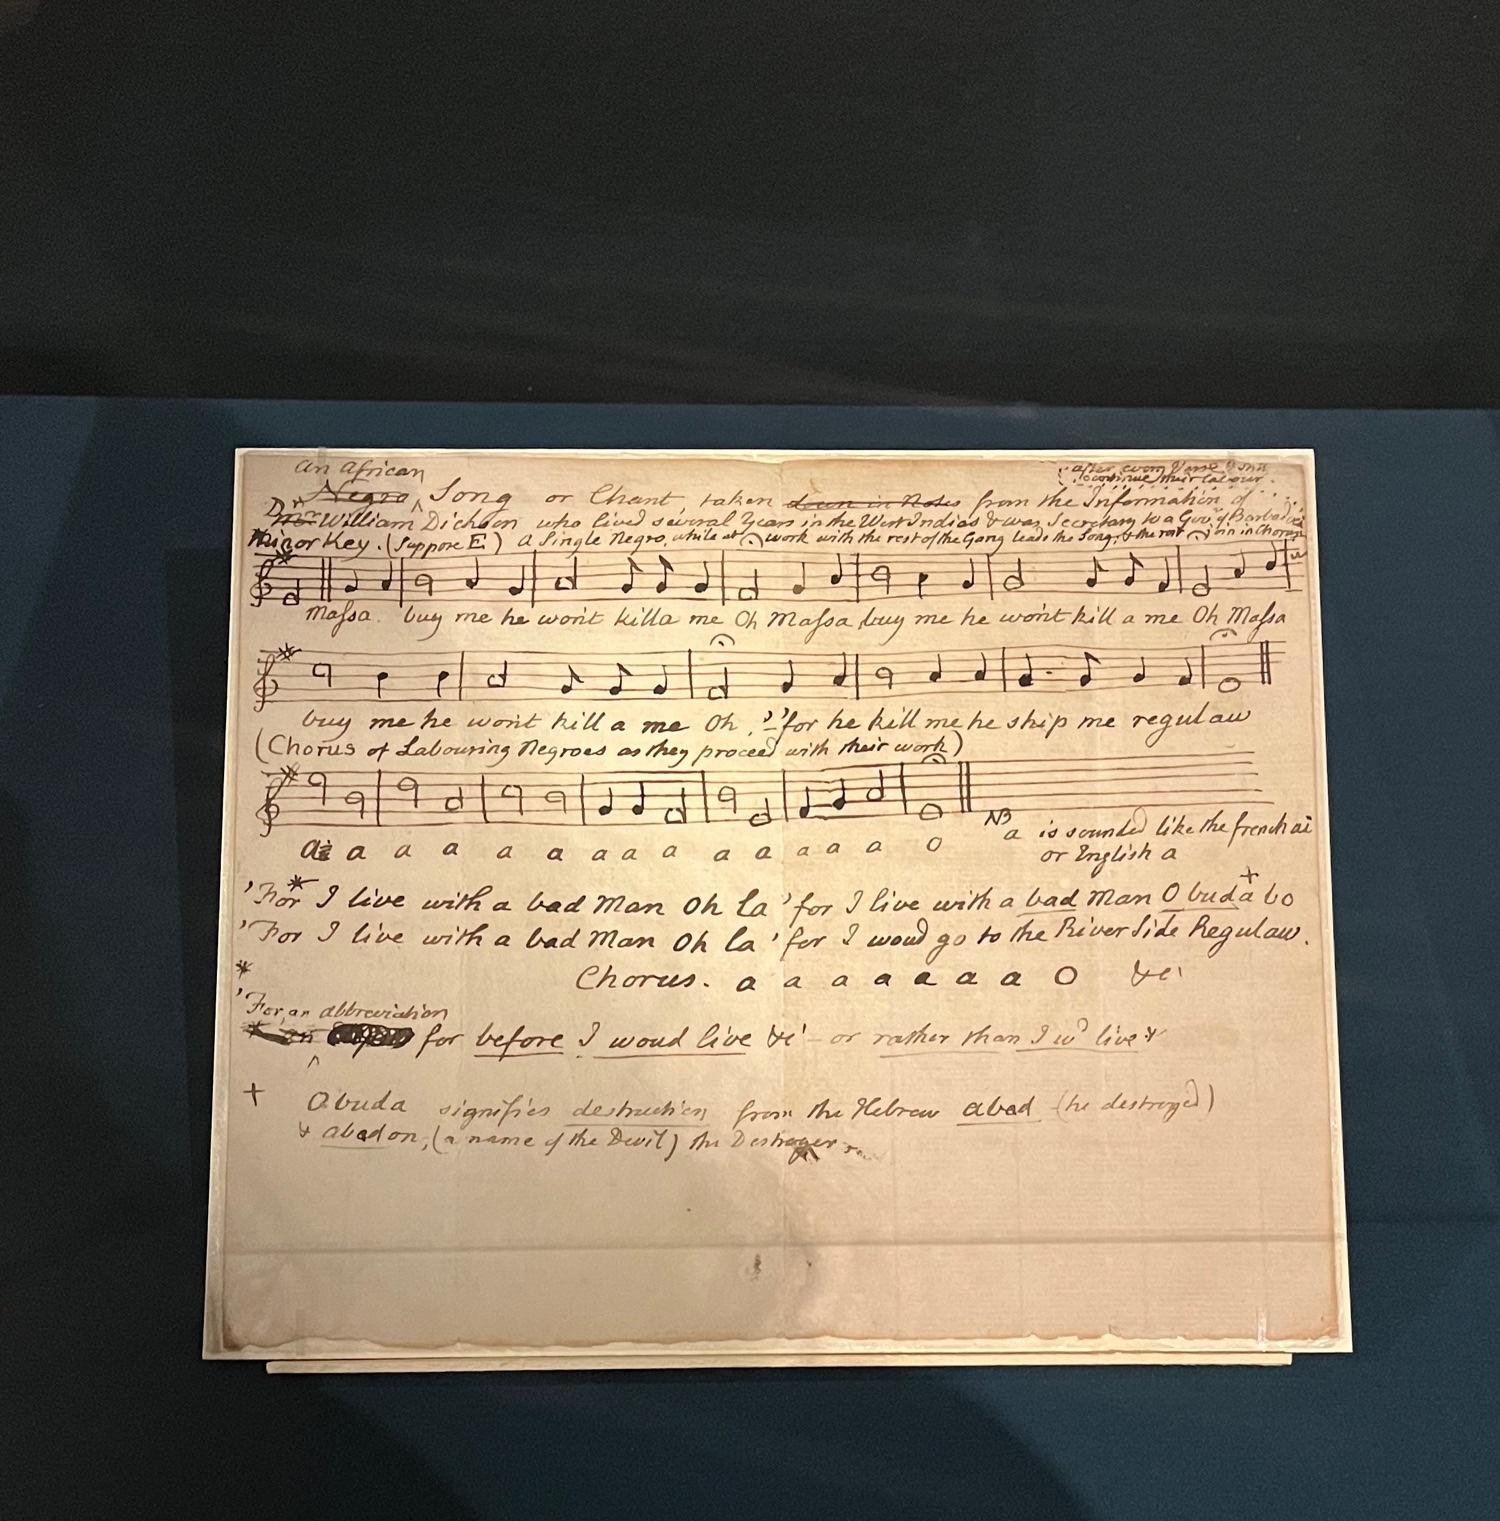 an African
Negro Song or Chant taken down in Notes from the Information of
after every Verse &
continue their Labour
Dr. Mr. William Dickson who lived several Years in the West Indies & was Secretary to a Gov. of Barbadoes
Minor Key. (Suppose E) A Single Negro, while at work with the rest of the Gang leads the Song, & the rest join in Chorus
Massa buy me he won't killa me Oh Massa buy me he won't kill a me Oh Massa
buy me he won't kill a me Oh, 'for he kill me he ship me regulaw
(Chorus of Labouring Negroes as they proceed with their work)
a a a a a a a a a a a a a a o
NB a is sounded like the french ai
or English a
'For * I live with a bad Man Oh la 'for I live with a bad Man Obuda + bo
'For I live with a bad Man Oh la 'for I woud go to the River Side Regulaw.
Chorus. a a a a a a a O &c
*
'For, an abbreviation
* for before I woud live &c – or rather than I wd live &
+ Obuda signifies destruction from the Hebrew abad (he destroyed)
& abadon, (a name of the Devil) the Destroyer